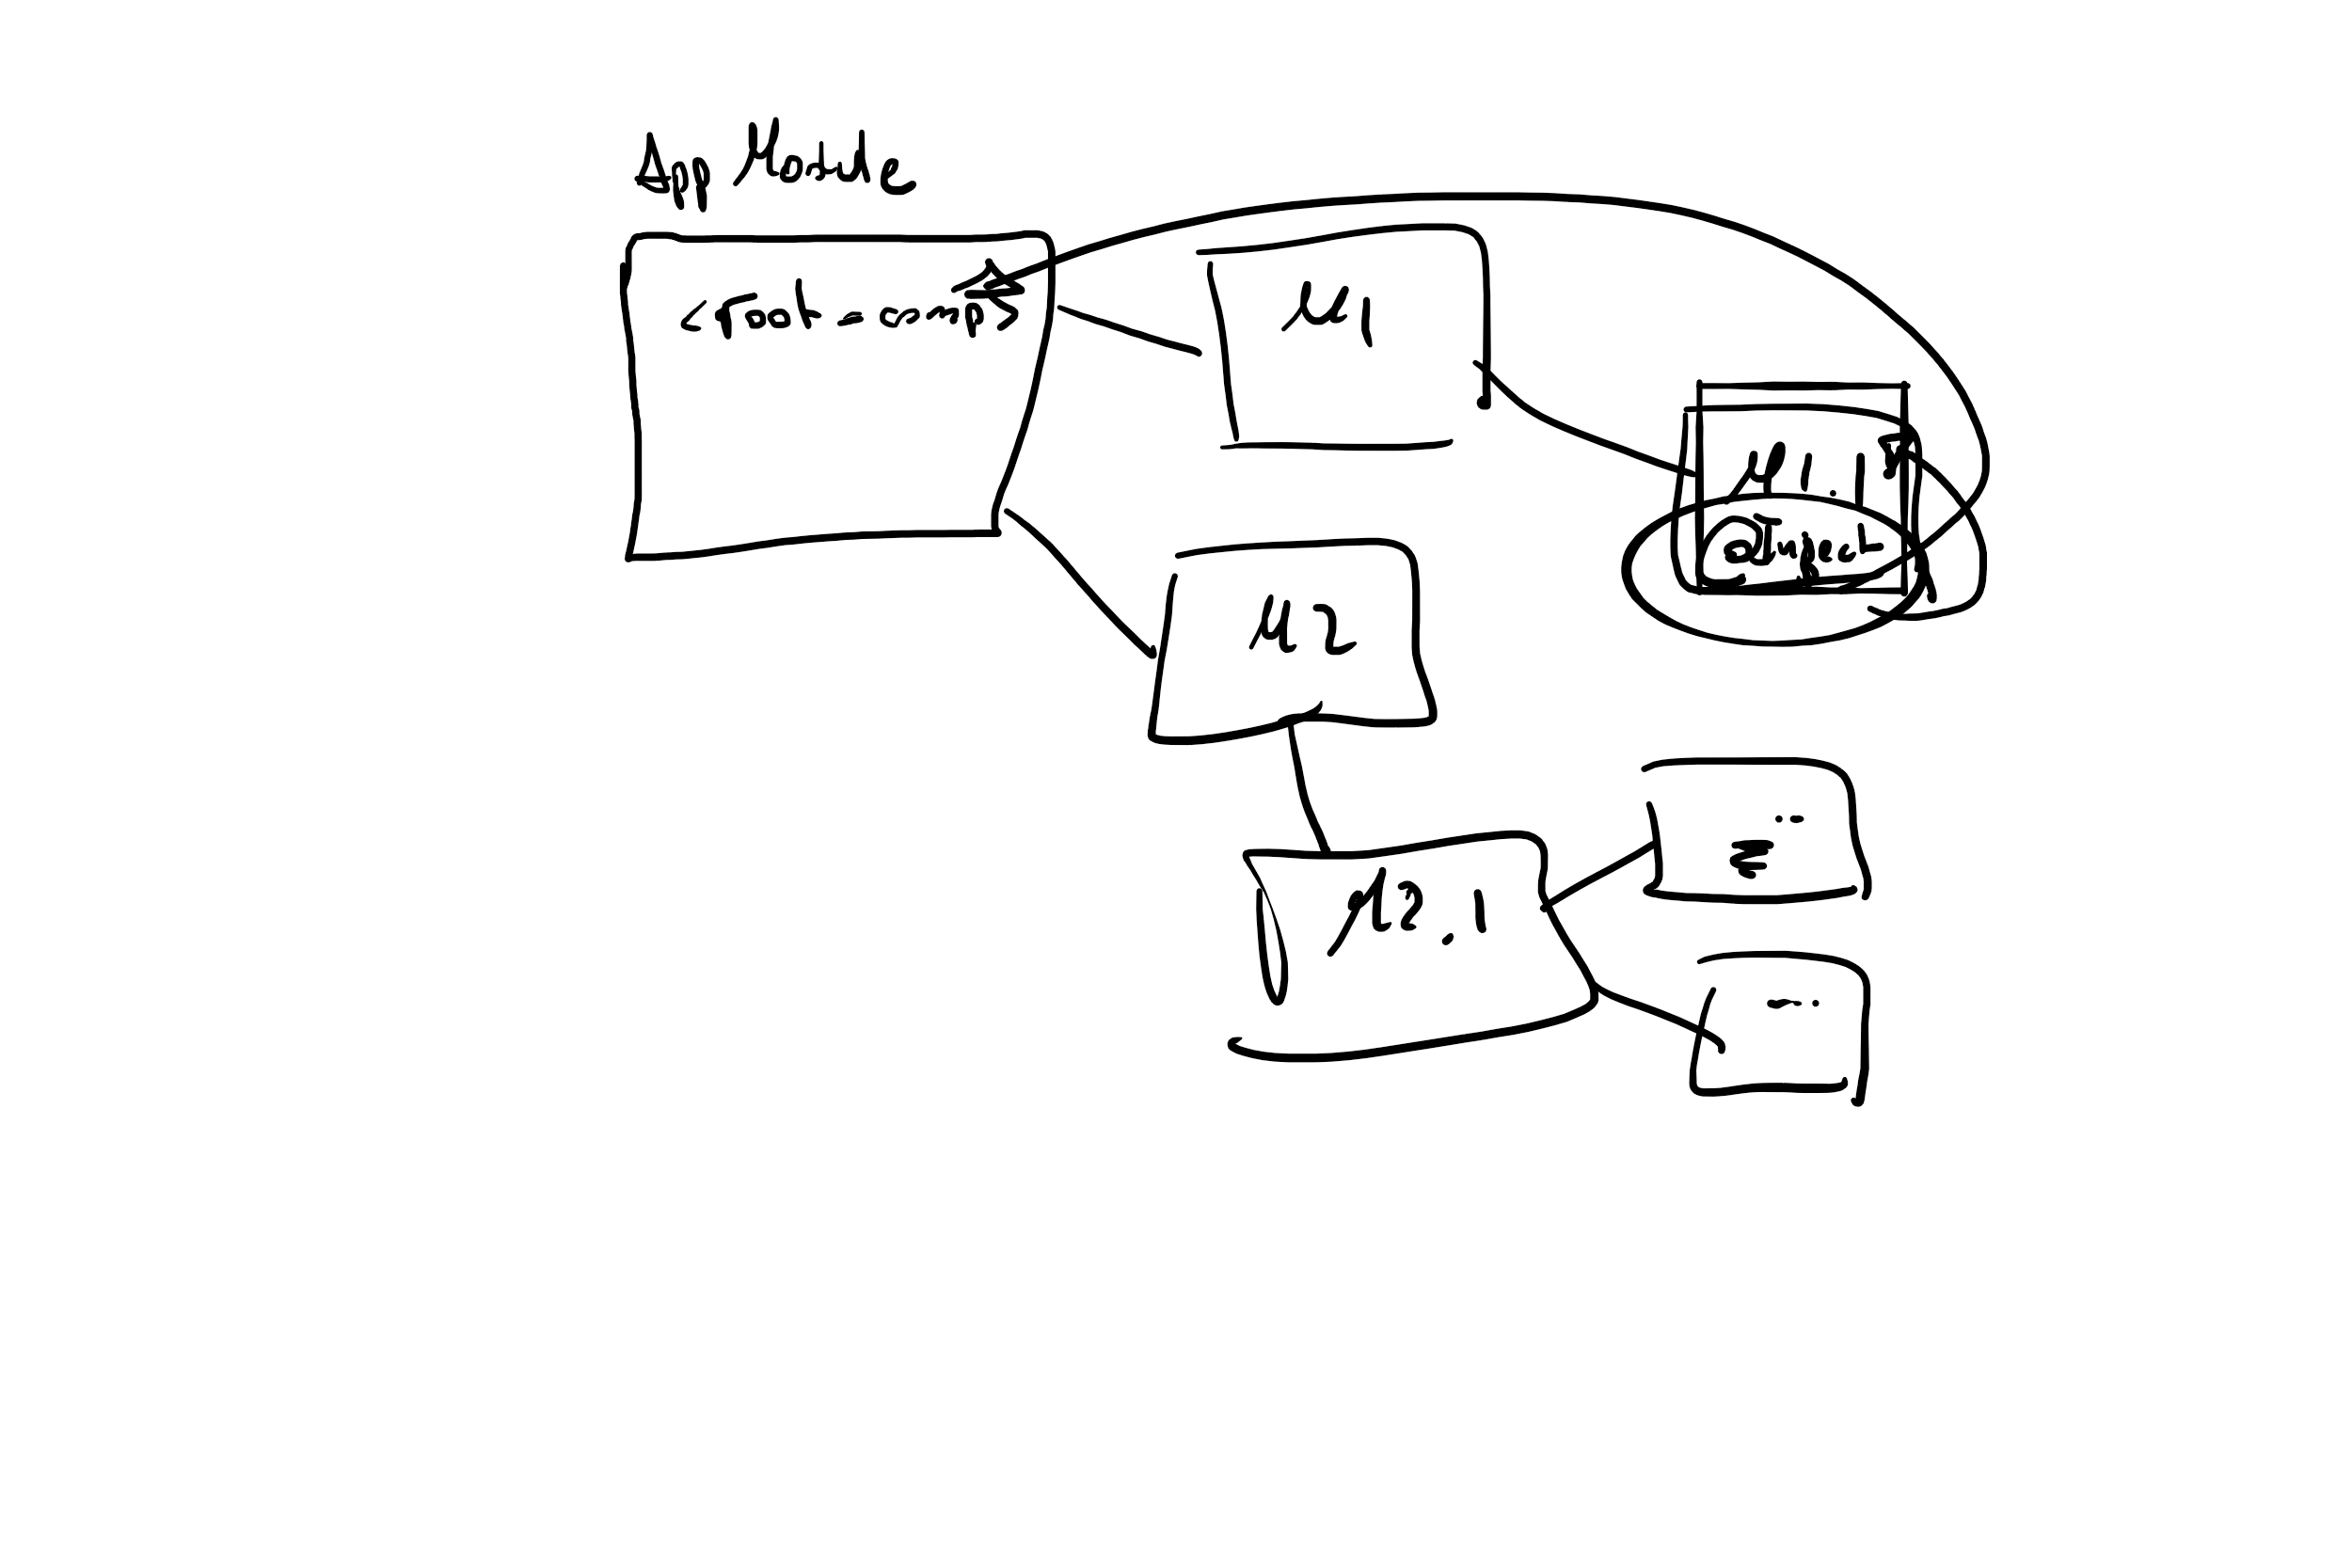 App Module
<root-comp>
M1
M1.1
@Inject
M2
M2.1